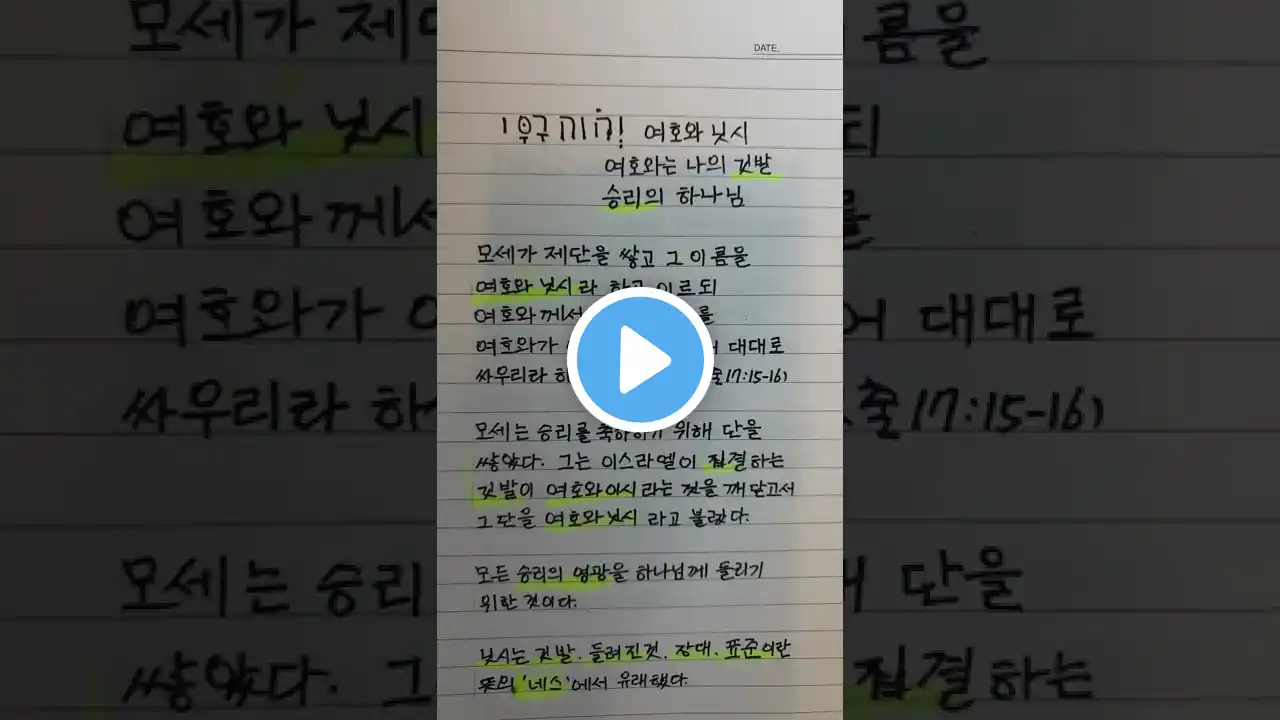 DATE.
여호와 닛시
여호와는 나의 깃발
승리의 하나님
모세가 제단을 쌓고 그 이름을
여호와 닛시라 하고 이르되
여호와께서 를
여호와가 대대로
싸우리라 하 출17:15-16)
모세는 승리를 축하하기 위해 단을
쌓았다. 그는 이스라엘이 집결하는
깃발이 여호와이시라는 것을 깨닫고서
그 단을 여호와 닛시 라고 불렀다.
모든 승리의 영광을 하나님께 돌리기
위한 것이다.
닛시는 깃발. 들려진것. 장대. 표준이란
뜻의 '네스'에서 유래했다.